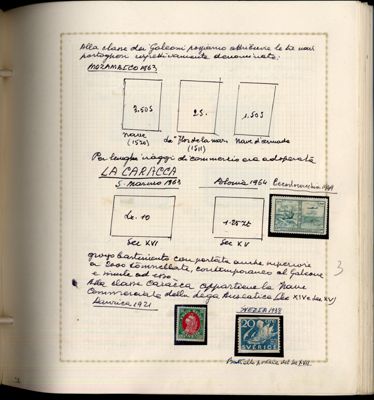 Alla classe dei Galeoni possiamo attribuire le tre navi
portoghesi rispettivamente denominate:
MOZAMBICO 1963
3.50$ 2$. 1.50$
Nave (1520) La "Flor de la mar" (1511) Nave d'armata
Per lunghi viaggi di commercio era adoperata
LA CARACCA
S. Marino 1963 Polonia 1964 Cecoslovacchia
Lr. 10 1.25 Zt
Sec XVI Sec XV
grosso bastimento con portata anche superiore
a 2000 tonnellate, contemporaneo al Galeone
e simile ad esso.
Alla classe Caracca appartiene la Nave
Commerciale della Lega Anseatica (Sec XIV e Sec XV)
1921
20
SVERIGE
3